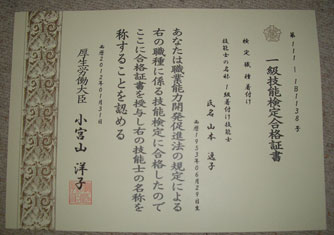 第111-1B1138号
一級技能検定合格証書
検定職種 着付け
技能士の名称 1級着付け技能士
氏名 山本 逸子
西暦1952年06月29日生
あなたは職業能力開発促進法の規定による
右の職種に係る技能検定に合格したので
ここに合格証書を授与し右の技能士の名称を
称することを認める
西暦2012年01月31日
厚生労働大臣 小宮山 洋子